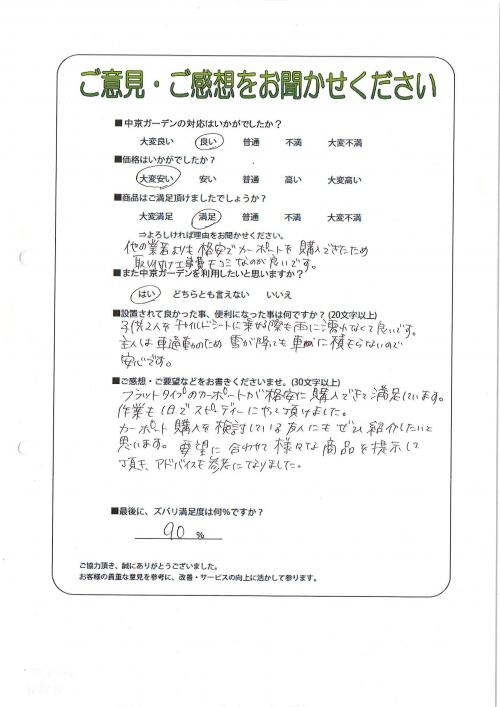 ご意見・ご感想をお聞かせください
■中京ガーデンの対応はいかがでしたか？
大変良い 良い 普通 不満 大変不満
■価格はいかがでしたか？
大変安い 安い 普通 高い 大変高い
■商品はご満足頂けましたでしょうか？
大変満足 満足 普通 不満 大変不満
⇒よろしければ理由をお聞かせください。
他の業者よりも格安でカーポートを購入できたため
取り付け工事費もコミなのが良いです。
■また中京ガーデンを利用したいと思いますか？
はい どちらとも言えない いいえ
■設置されて良かった事、便利になった事は何ですか？ (20文字以上)
子供2人をチャイルドシートに乗せる際も雨に濡れなくて良いです。
主人は車通勤のため雪が降っても車に積もらないので
安心です。
■ご感想・ご要望などをお書きくださいませ。(30文字以上)
フラットタイプのカーポートが格安に購入できて満足しています。
作業も1日でスピーディーにやって頂けました。
カーポート購入を検討している友人にもぜひ紹介したいと
思います。要望に合わせて様々な商品を提示して
頂き、アドバイスも参考になりました。
■最後に、ズバリ満足度は何％ですか？
90 ％
ご協力頂き、誠にありがとうございました。
お客様の貴重な意見を参考に、改善・サービスの向上に活かして参ります。